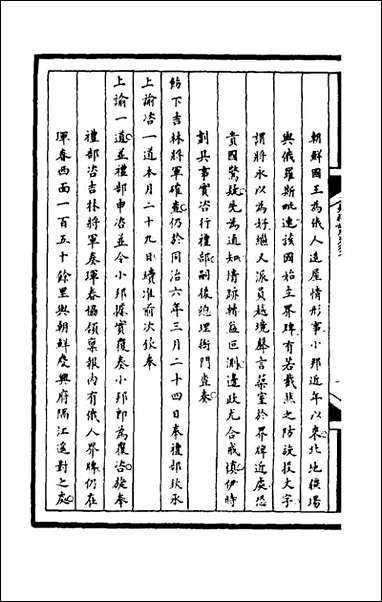 朝鮮國王為俄人造屋情形事小邦近年以來北地候場
與俄羅斯毗連該國始立界牌有若截然之防旋投文字
謂將永以為好繼又派員越境聲言築室於界牌近處恐
貴國驚疑先為通知情跡轉益叵測邊政尤合戒慎伊時
劃具事實咨行禮部嗣後總理衙門查奏
飭下吉林將軍確查仍於同治六年三月二十四日奉禮部欽承
上諭咨一道本月二十九日續准前次欽奉
上諭一道並禮部申咨並令小邦據實覆奏小邦即為覆咨旋奉
禮部咨吉林將軍奏琿春協領稟報內有俄人界牌仍在
琿春西面一百五十餘里與朝鮮慶興府隔江遙對之處